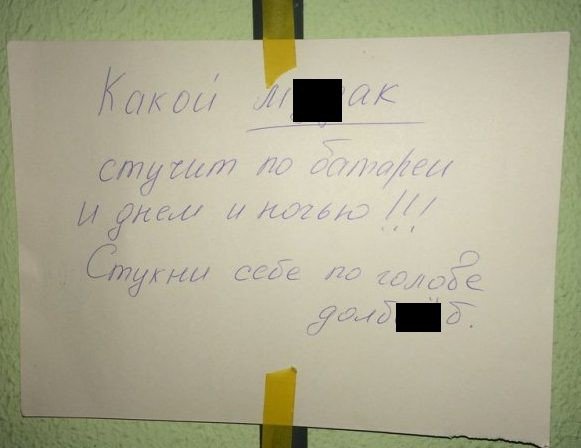 Какой м ак
стучит по батареи
и днем и ночью!!!
Стукни себе по голове
долб б.